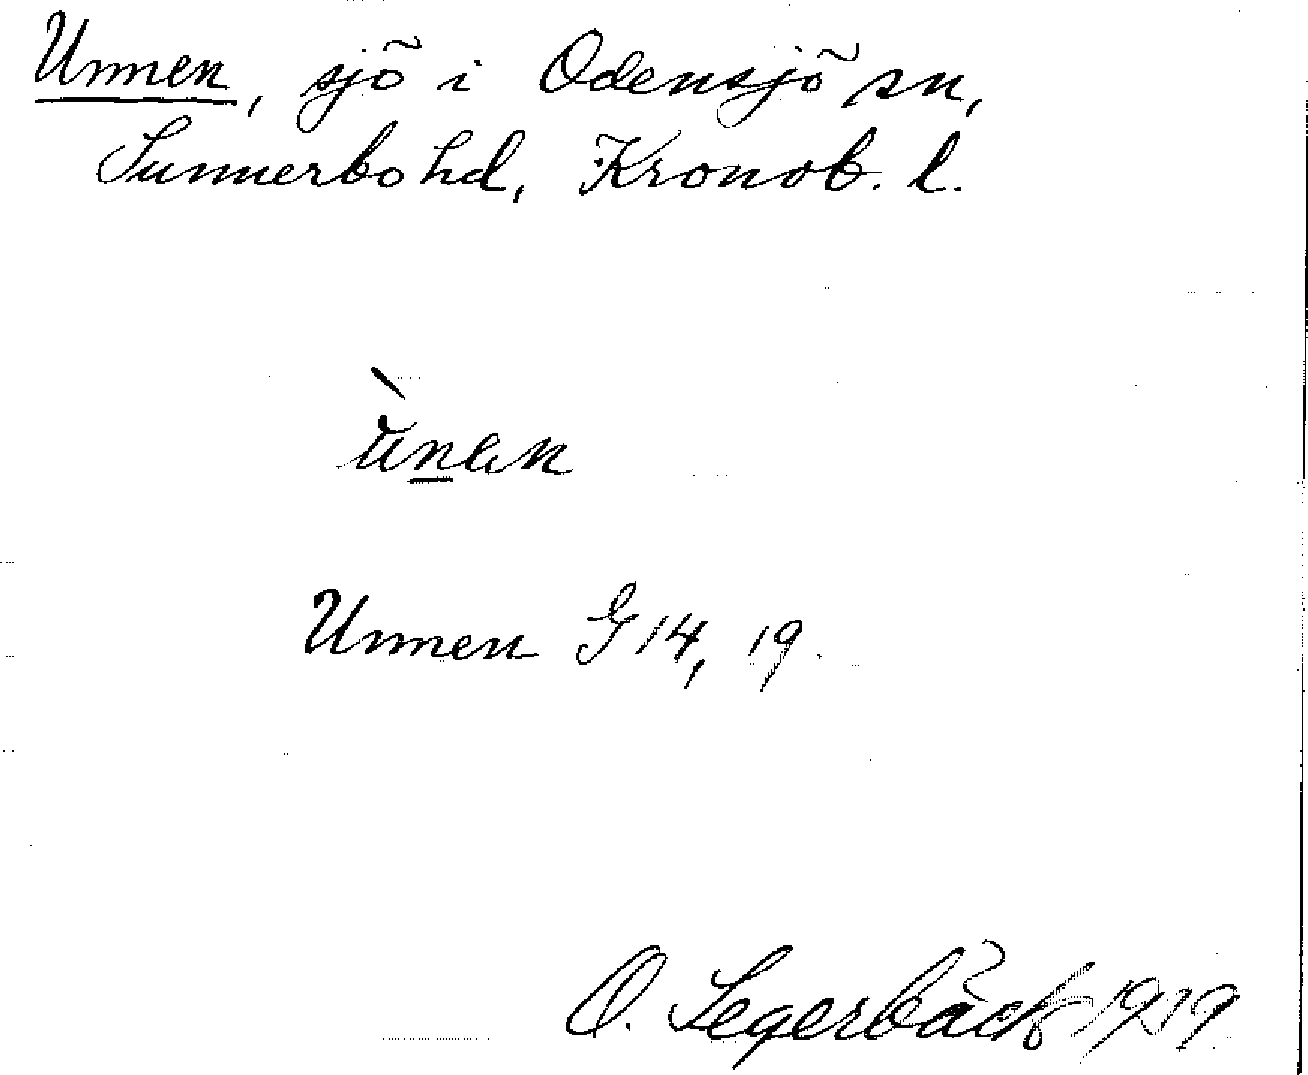 Unnen, sjö i Odensjö sn,
Sunnerbo hd, Kronob. l.
Unnen G 14, 19.
O. Segerbäck 1919